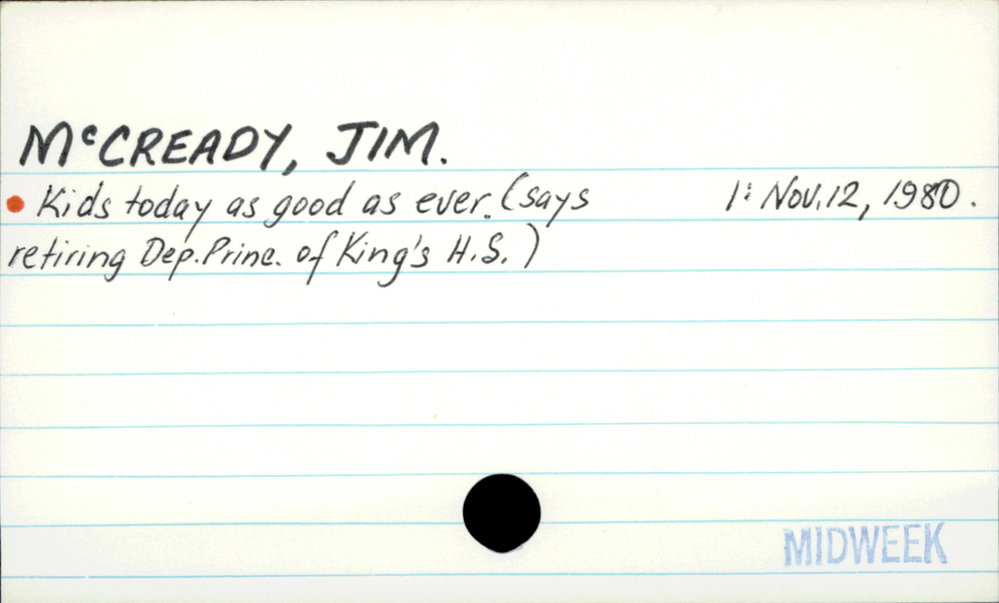 McCREADY, JIM.
• Kids today as good as ever. (says 1: Nov. 12, 1980.
retiring Dep. Princ. of King's H.S.)
MIDWEEK